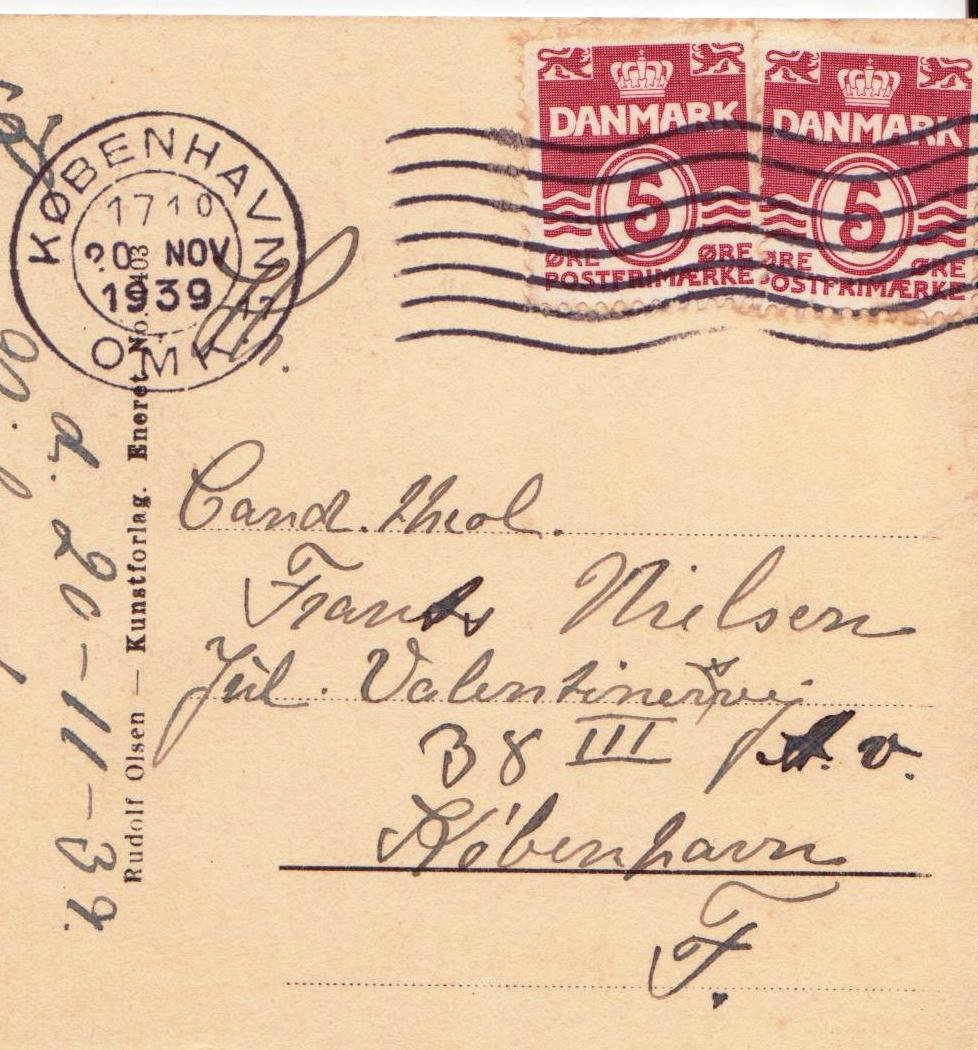 KØBENHAVN
1710
20 NOV
1939
OMK
DANMARK
5
ØRE ØRE
POSTFRIMÆRKE
DANMARK
5
ØRE ØRE
POSTFRIMÆRKE
Cand. theol.
Frants Nielsen
Jul. Valentinersvej
38 III t. v.
København
F.
d. 20-11-39.
Rudolf Olsen — Kunstforlag. Eneret No.